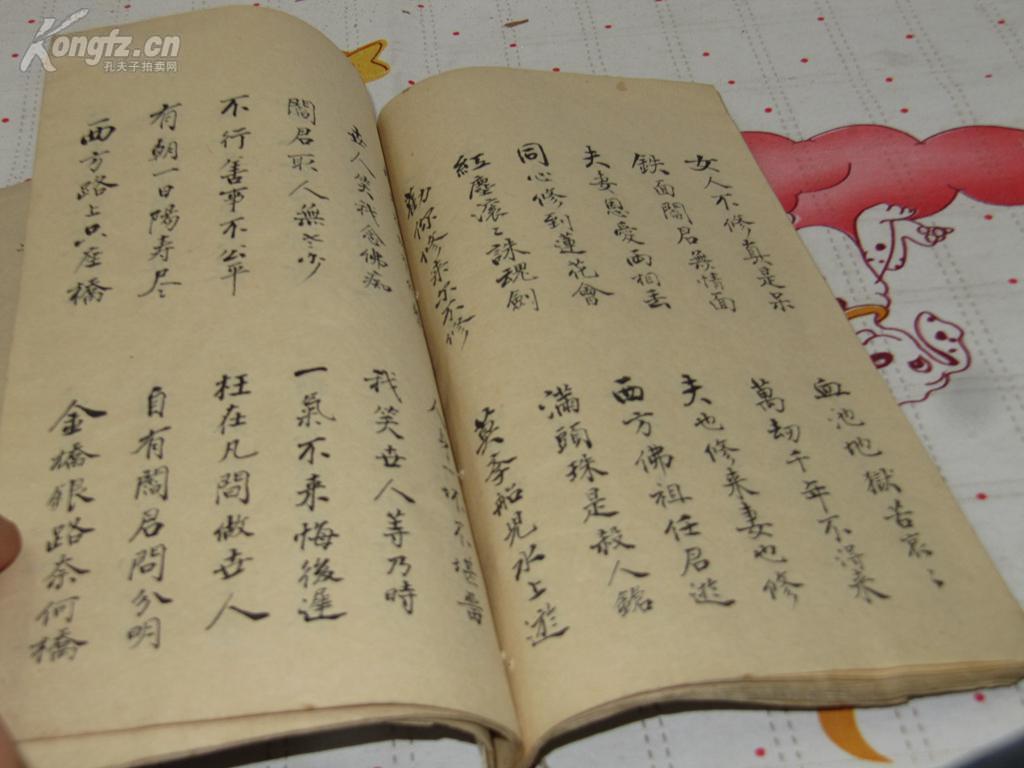 Kongfz.cn
孔夫子拍卖网
女人不修真是呆
血池地獄苦哀〻
鉄面閻君無情面
萬劫千年不得來
夫妻恩愛兩相垂
夫也修来妻也修
同心修到蓮花會
西方佛祖任君遊
紅塵滾〻誅魂劍
滿頭珠是殺人
勸你修来不修
船兒水上遊
人笑我念佛痴
我笑世人等乃時
閻君取人無老少
一氣不来悔後遲
不行善事不公平
枉在凡間做世人
有朝一日陽壽尽
自有閻君問分明
西方路上只座橋
金橋銀路奈何橋